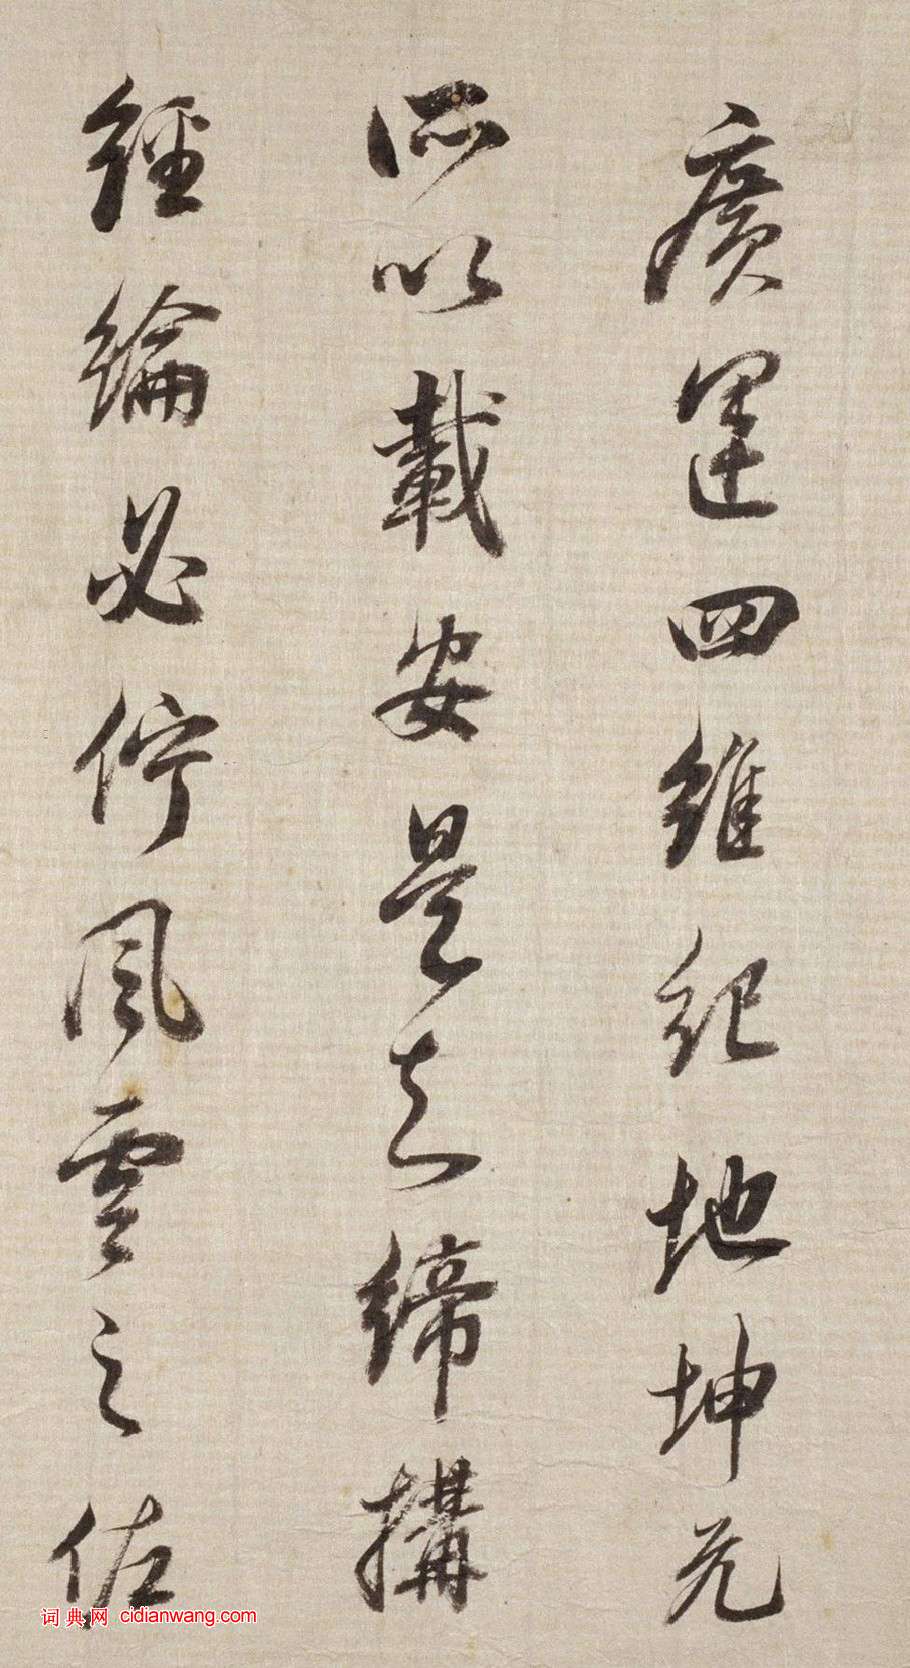 廣運四維紀地坤元
所以載安是知締搆
經綸必佇風雲之佐
词典网 cidianwang.com